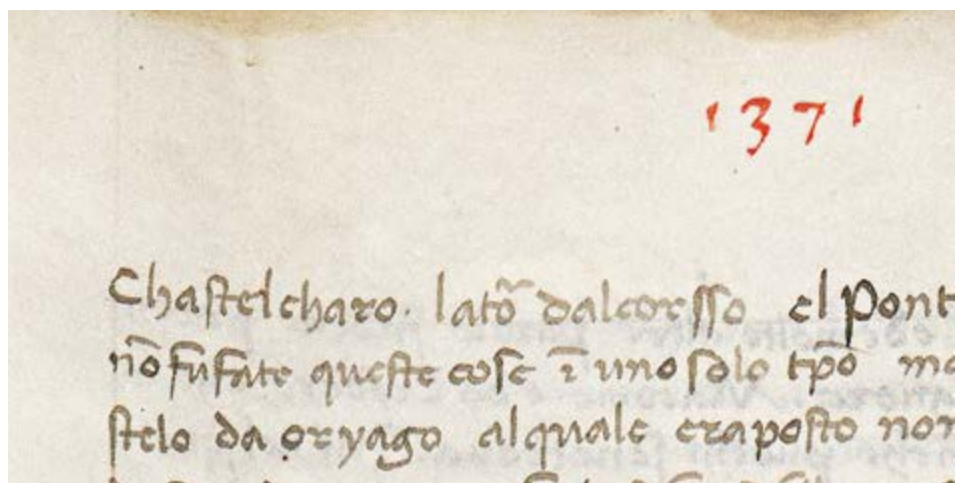 1371
Chastelcharo. latõ dalcorsso el Pont
nõ fu fate queste cose ĩ uno solo tp̃o ma
stelo da oryago al quale era posto non